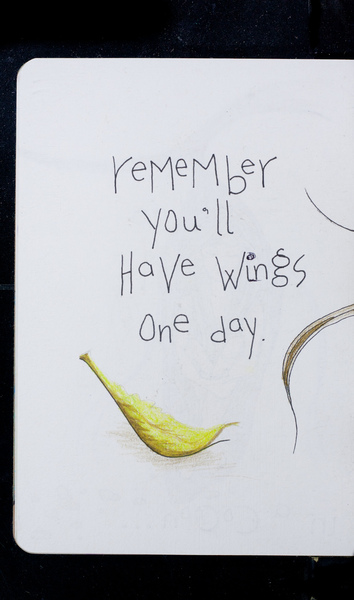 remember
you'll
Have wings
one day.